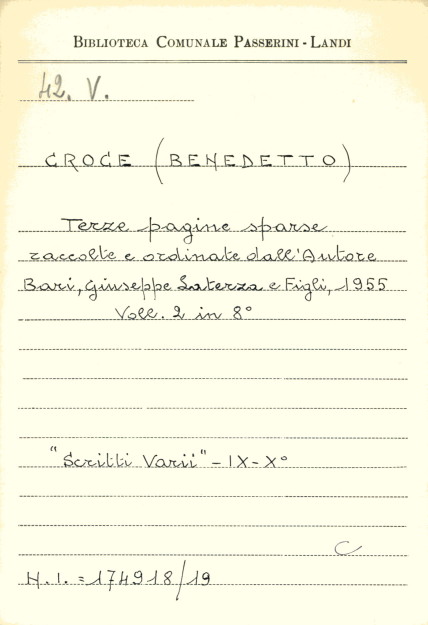 BIBLIOTECA COMUNALE PASSERINI - LANDI
42. V.
CROCE (BENEDETTO)
Terze pagine sparse
raccolte e ordinate dall'Autore
Bari, Giuseppe Laterza e Figli, 1955
Voll. 2 in 8°
"Scritti Varii" - IX - X°
C
N. I. = 174918/19